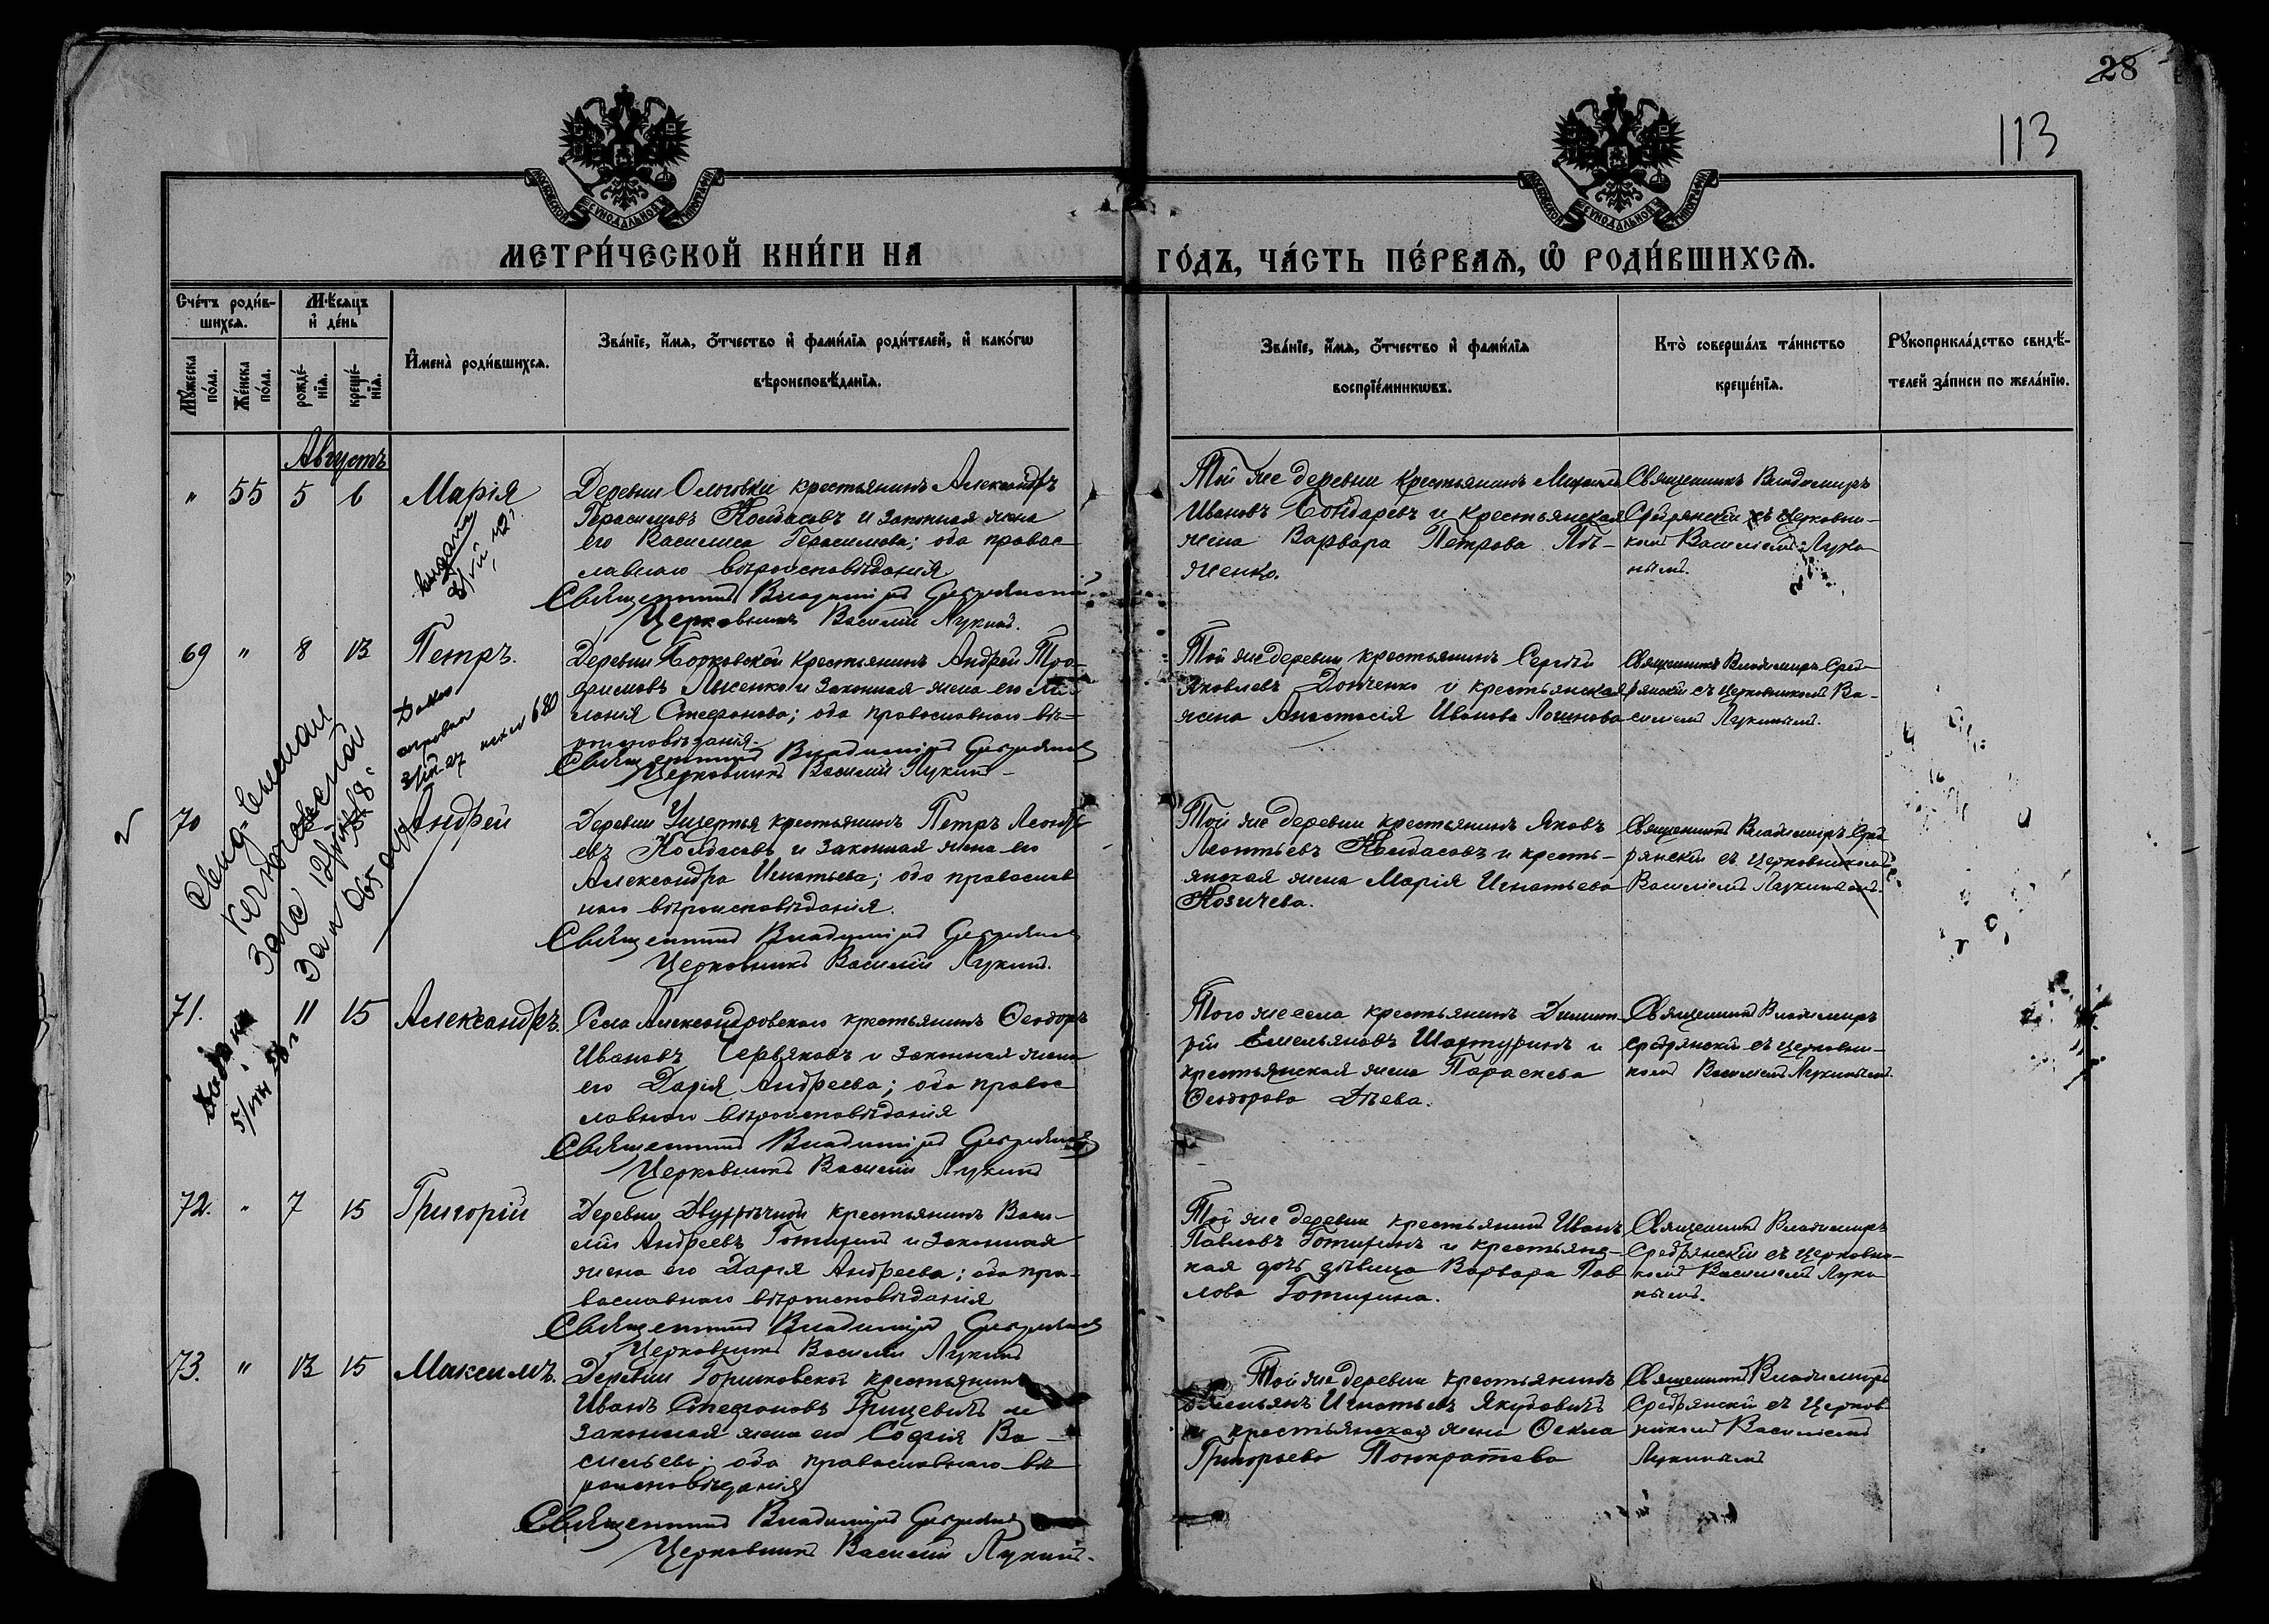 28
113
МОСКОВСКОЙ СѴНОДАЛЬНОЙ ТИПОГРАФІИ
МОСКОВСКОЙ СѴНОДАЛЬНОЙ ТИПОГРАФІИ
МЕТРИ́ЧЕСКОЙ КНИ́ГИ НА
ГО́ДЪ, ЧА́СТЬ ПЕ́РВАѦ, Ѡ҆ РОДИ́ВШИХСѦ.
Сче́тъ роди́в-
шихсѧ.
Мꙋ́жеска по́ла.
Же́нска по́ла.
Мѣ́сѧцъ
и҆ де́нь
рожде́-
нїѧ.
креще́-
нїѧ.
И҆мена̀ роди́вшихсѧ.
Зва́нїе, и҆́мѧ, ѻ҆́тчество и҆ фами́лїѧ роди́телей, и҆ како́гѡ
вѣроисповѣ́данїѧ.
Зва́нїе, и҆́мѧ, ѻ҆́тчество и҆ фами́лїѧ
воспрїе́мникѡвъ.
Кто̀ соверша́лъ та́инство
креще́нїѧ.
Рꙋкоприкла́дство свидѣ́-
телей за́писи по жела́нїю.
Августъ
" 55 5 6 Марія
Деревни Ольговки крестьянинъ Александръ
Герасимовъ Колбасовъ и законная жена
его Василиса Герасимова; оба правос-
лавнаго вѣроисповѣданія
Священникъ Владиміръ Средрянскій
Церковникъ Василій Лукинъ.
Той же деревни крестьянинъ Михаилъ
Ивановъ Бондаревъ и крестьянская
жена Варвара Петрова
женко.
Священникъ Владимиръ
Средрянскій съ церковни-
комъ Василіемъ Луки-
нымъ.
выдана
69 " 8 13 Петръ.
Деревни Борковской крестьянинъ Андрей
Лысенко и законная жена его
Стефанова; оба православнаго вѣ-
роисповѣданія.
Священникъ Владиміръ Средрянскій
Церковникъ Василій Лукинъ
Той же деревни крестьянинъ Сергѣй
Яковлевъ Донченко и крестьянская
жена Анастасія Иванова Логинова
Священникъ Владимиръ Сред-
рянскій съ церковникомъ Ва-
силіемъ Лукинымъ.
справка
680
70 Андрей
Деревни крестьянинъ Петръ Леонть-
евъ Колбасовъ и законная жена его
Александра Игнатьева; оба православ-
наго вѣроисповѣданія.
Священникъ Владиміръ Средрянскій
Церковникъ Василій Лукинъ.
Той же деревни крестьянинъ Яковъ
Леонтьевъ Колбасовъ и кресть-
янская жена Марія Игнатьева
Козичева.
Священникъ Владимиръ Сред-
рянскій съ церковникомъ
Василіемъ Лукинымъ.
71. 11 15 Александръ.
Села Александровскаго крестьянинъ Ѳеодоръ
Ивановъ Червяковъ и законная жена
его Дарія Андреева; оба правос-
лавнаго вѣроисповѣданія
Священникъ Владиміръ Средрянскій
Церковникъ Василій Лукинъ
Того же села крестьянинъ Димит-
рій Емельяновъ Шаптуринъ и
крестьянская жена Параскева
Ѳеодорова Дѣева.
Священникъ Владимиръ
Средрянскій съ церковни-
комъ Василіемъ Лукинымъ.
72. " 7 15 Григорій
Деревни Двурѣчной крестьянинъ Васи-
лій Андреевъ Готишинъ и законная
жена его Дарія Андреева; оба пра-
вославнаго вѣроисповѣданія
Священникъ Владиміръ Средрянскій
Церковникъ Василій Лукинъ
Той же деревни крестьянинъ Иванъ
Павловъ Готишинъ и крестьянс-
кая дочь дѣвица Варвара Пав-
лова Готишина.
Священникъ Владимиръ
Средрянскій съ церковни-
комъ Василіемъ Луки-
нымъ.
73. " 13 15 Максимъ.
Деревни Горшковской крестьянинъ
Иванъ Стефановъ Грицевичъ и
законная жена его Софія Ва-
сильева; оба православнаго вѣ-
роисповѣданія
Священникъ Владиміръ Средрянскій
Церковникъ Василій Лукинъ.
Той же деревни крестьянинъ
Емельянъ Игнатьевъ Якубовичъ
и крестьянская жена Ѳекла
Григорьева Понкратова
Священникъ Владимиръ
Средрянскій съ церков-
никомъ Василіемъ
Лукинымъ